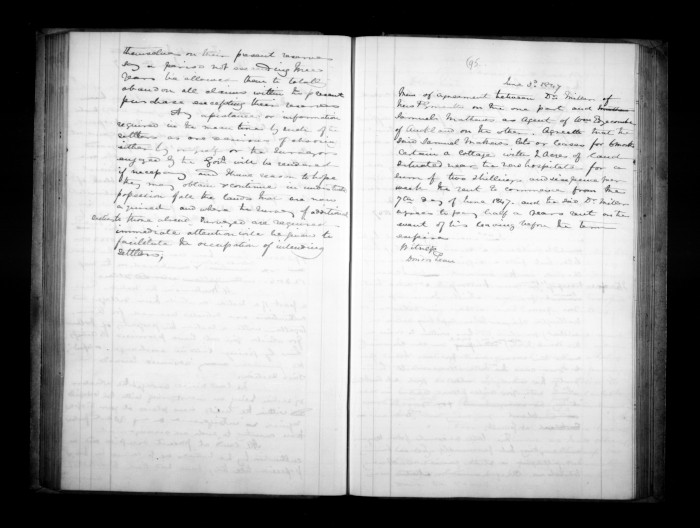 themselves on their present reserves
say a period not exceeding three
years be allowed them to totally
abandon all claims within the present
purchase excepting their reserves
Any assistance or information
required in the mean time by ende of the
settlers as are desirous of
either by myself or the Surveyor
engaged by the Govt will be rendered
if necessary and I have reason to hope
they may obtain & continue in undisturbed
possession of all the lands that are now
acquired and where the survey of additional
to those already surveyed are required
immediate attention will be given to
facilitate the occupation of intending
settlers;
95
June 3d 1847
Mem of agreement between Dr Miller of
New Plymouth on the one part and
Samuel as Agent of Wm
of Auckland on the other. Agreeth that he
said Samuel lets or leases for 6 months
certain a Cottage with 2 Acres of land
situated near the new hospital for a
sum of two shillings and sixpence per
week the rent to commence from the
7th day of June 1847. and the said Dr Miller
agrees to pay half a years rent in the
event of his leaving before the term
expires
Witness